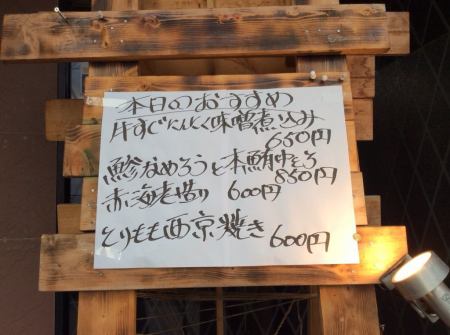 本日のおすすめ
牛すじにんにく味噌煮込み
650円
鯵なめろうと本鮪中とろ
850円
赤海老造り 600円
とりもも西京焼き 600円